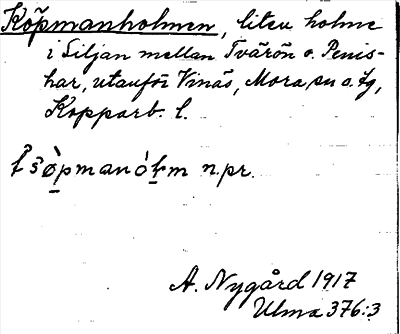 Köpmanholmen, liten holme
i Siljan mellan Tvärön o. Penis-
har, utanför Vinäs, Mora, sn o. tg,
Kopparb. l.
n.pr.
A. Nygård 1917
Ulma 376:3